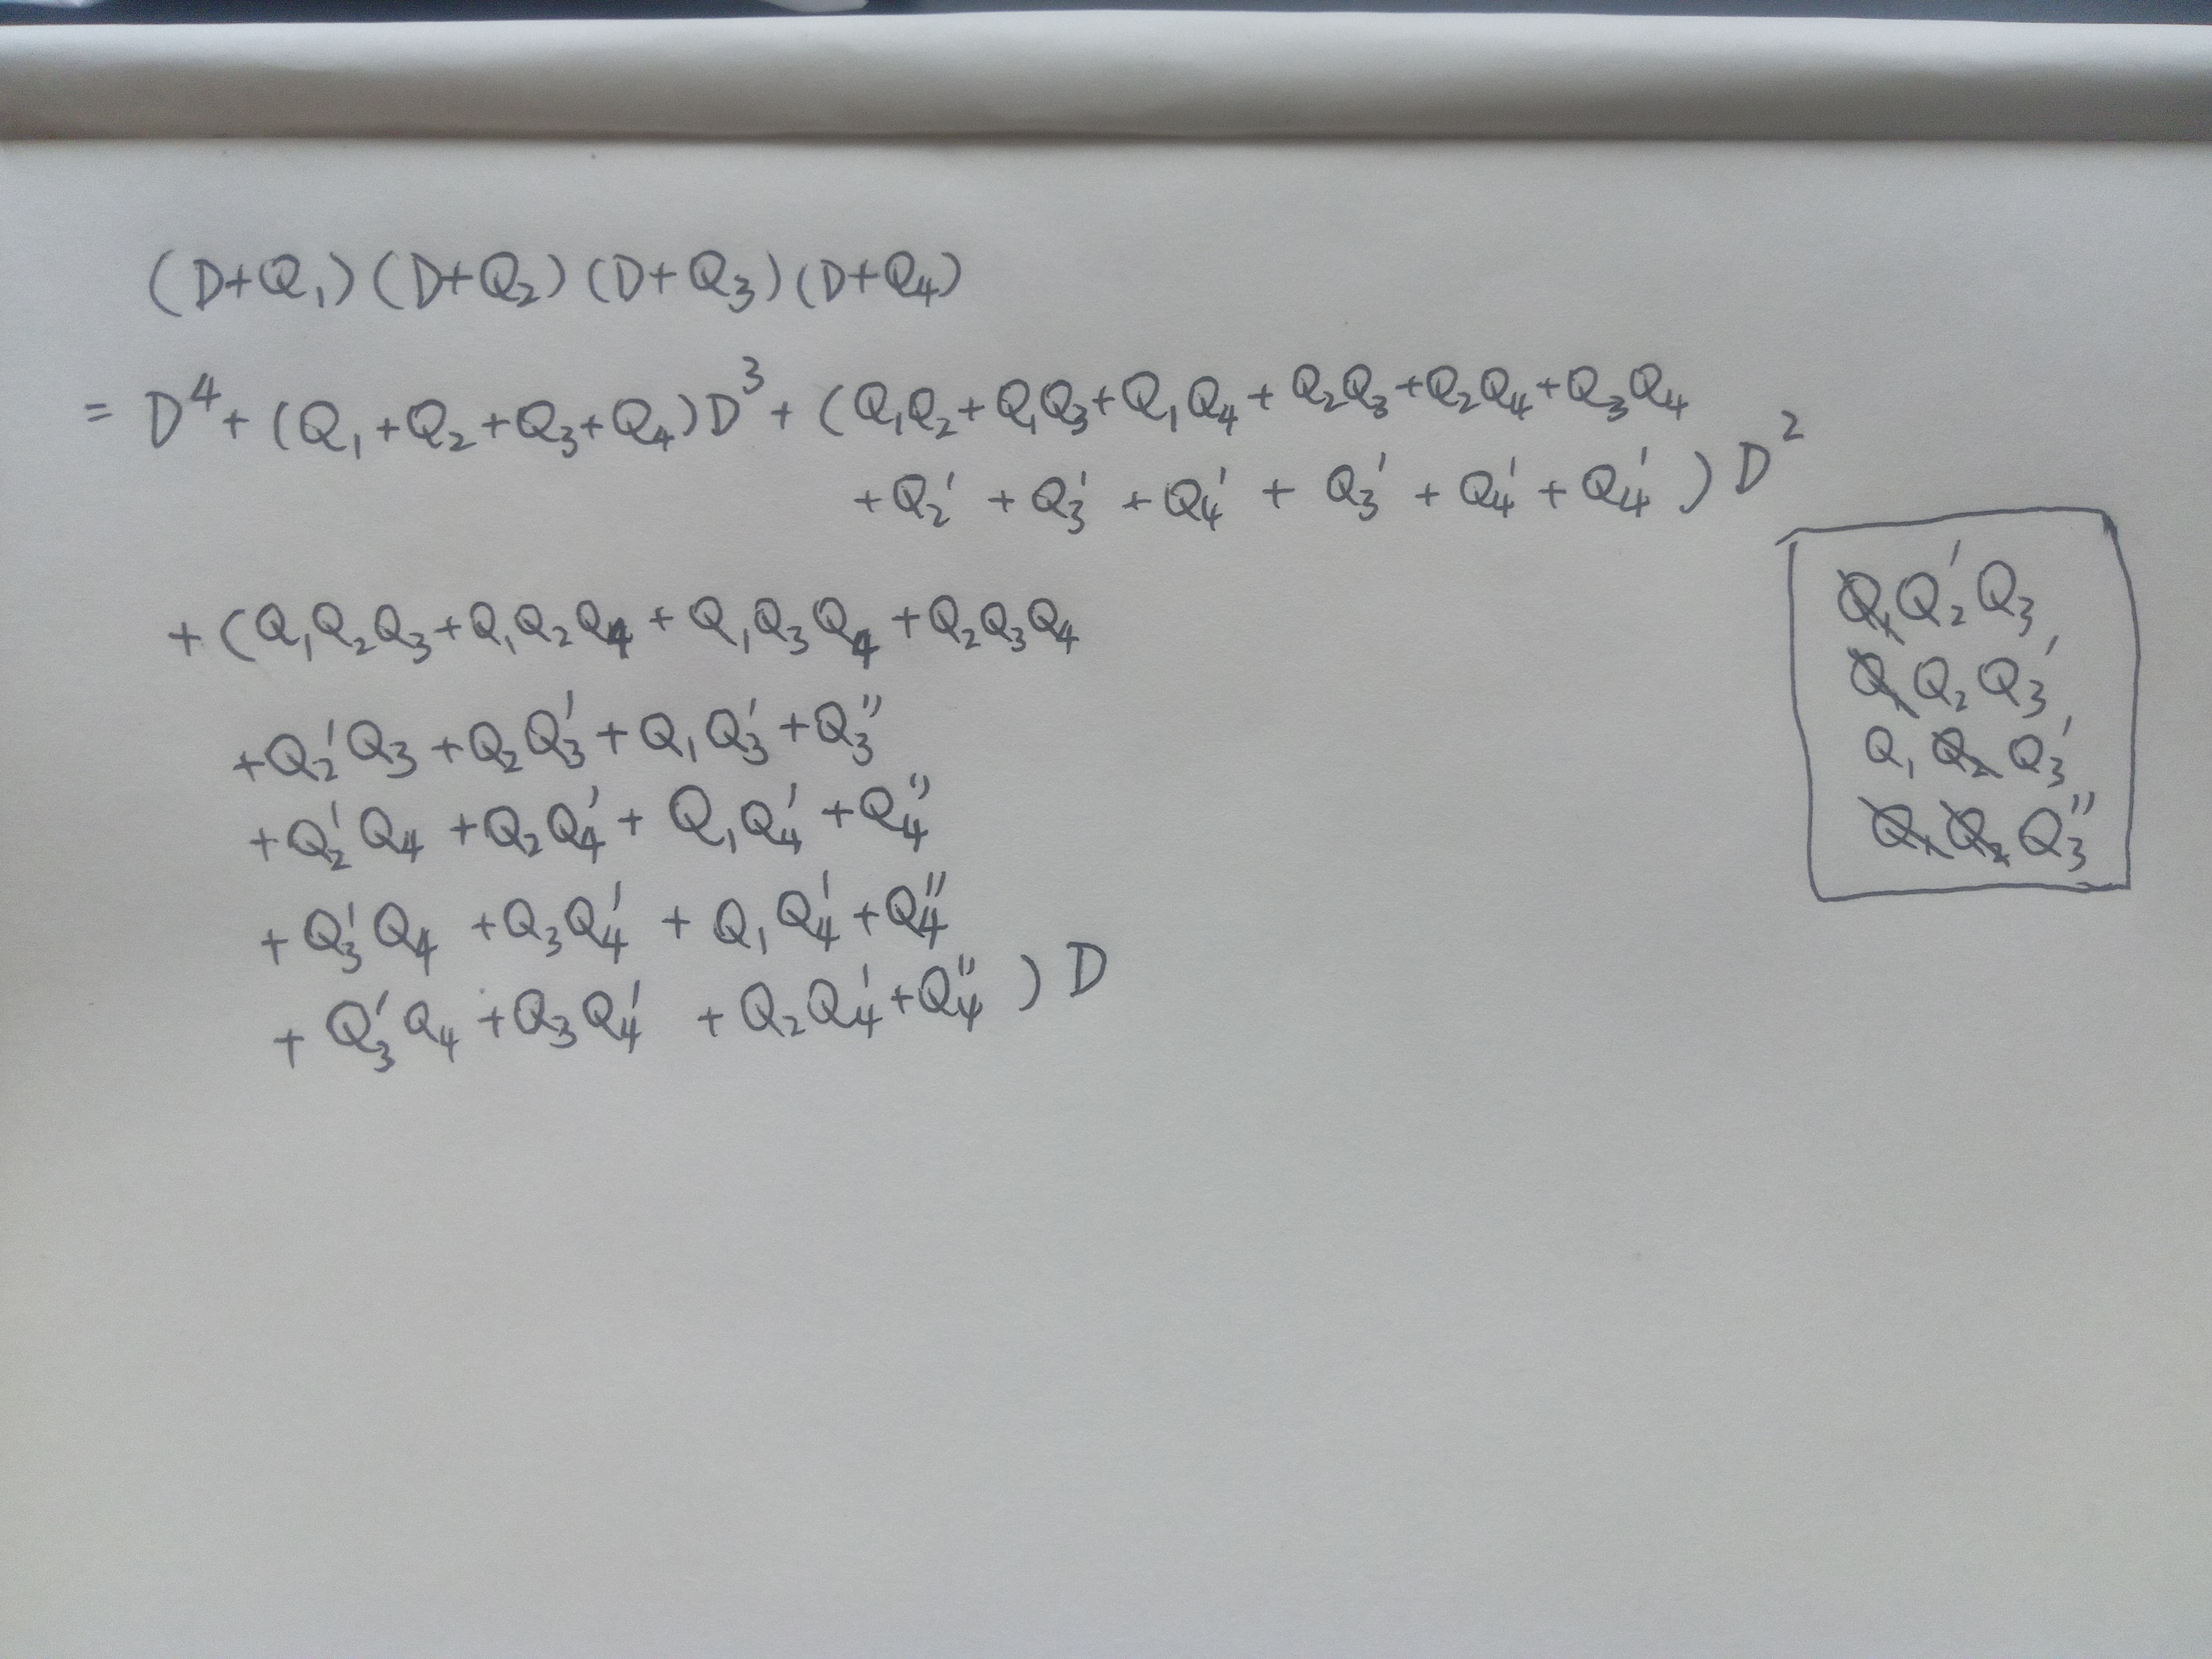 (D+Q₁)(D+Q₂)(D+Q₃)(D+Q₄)
= D⁴+(Q₁+Q₂+Q₃+Q₄)D³+(Q₁Q₂+Q₁Q₃+Q₁Q₄+Q₂Q₃+Q₂Q₄+Q₃Q₄
+Q₂'+Q₃'+Q₄'+Q₃'+Q₄'+Q₄')D²
+(Q₁Q₂Q₃+Q₁Q₂Q₄+Q₁Q₃Q₄+Q₂Q₃Q₄
+Q₂'Q₃+Q₂Q₃'+Q₁Q₃'+Q₃''
+Q₂'Q₄+Q₂Q₄'+Q₁Q₄'+Q₄''
+Q₃'Q₄+Q₃Q₄'+Q₁Q₄'+Q₄''
+Q₃'Q₄+Q₃Q₄'+Q₂Q₄'+Q₄'')D
Q₁Q₂'Q₃,
Q₁Q₂Q₃',
Q₁Q₂Q₃'
Q₁Q₂Q₃''